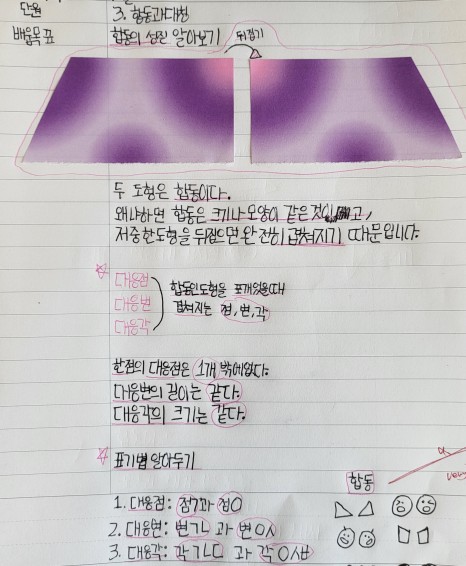 단원
3. 합동과 대칭
배움목표
합동의 성질 알아보기
뒤집기
두 도형은 합동이다.
왜냐하면 합동은 크기나 모양이 같은 것이고,
저 중 한 도형을 뒤집으면 완전히 겹쳐지기 때문입니다.
대응점
대응변
대응각
합동인 도형을 포개었을 때
겹쳐지는 점, 변, 각
한점의 대응점은 1개 밖에 없다.
대응변의 길이는 같다.
대응각의 크기는 같다.
표기법 알아두기
합동
1. 대응점: 점ㄱ과 점ㅇ
2. 대응변: 변ㄱㄴ 과 변ㅇㅅ
3. 대응각: 각ㄱㄴㄷ 과 각ㅇㅅㅂ